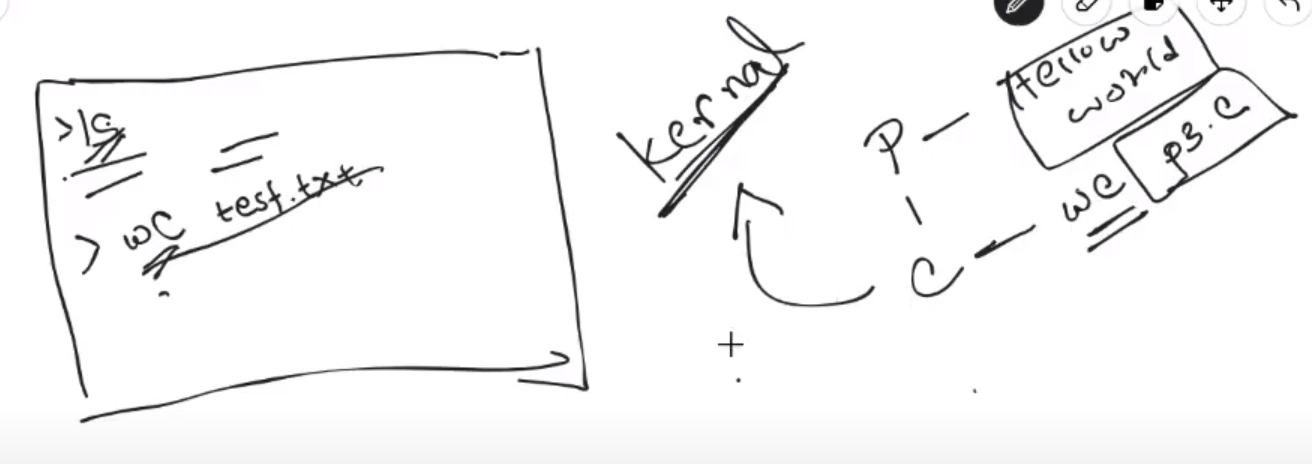 >ls
> wc test.txt
kernal
P - Hellow
world
p3.c
C - wc